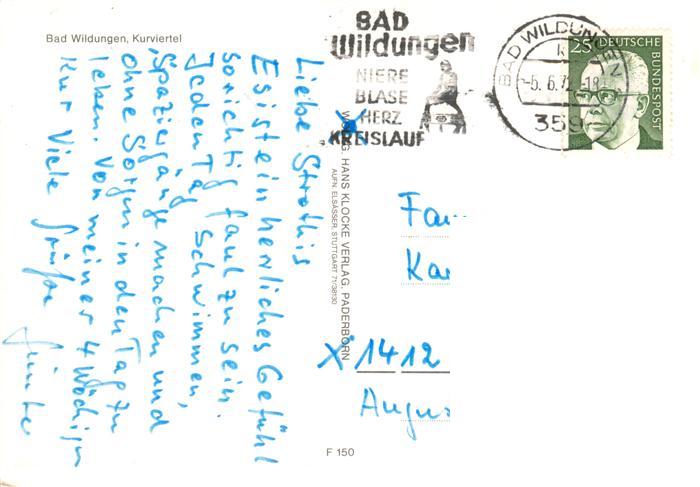 Bad Wildungen, Kurviertel
Liebe Strothis
Es ist ein herrliches Gefühl
so richtig faul zu sein.
Jeden Tag schwimmen,
Spaziergänge machen und
ohne Sorgen in den Tag zu
leben. Von meiner 4 wöchigen
Kur Viele
Grüße
Günter
WILH. HANS KLOCKE VERLAG, PADERBORN
AUFN. ELSÄSSER, STUTTGART 71/38130
F 150
BAD
Wildungen
NIERE
BLASE
HERZ
KREISLAUF
BAD WILDUNGEN
-5.6.72.-18
359
25 DEUTSCHE
BUNDESPOST
Fa
Ka
X 1412
Augu